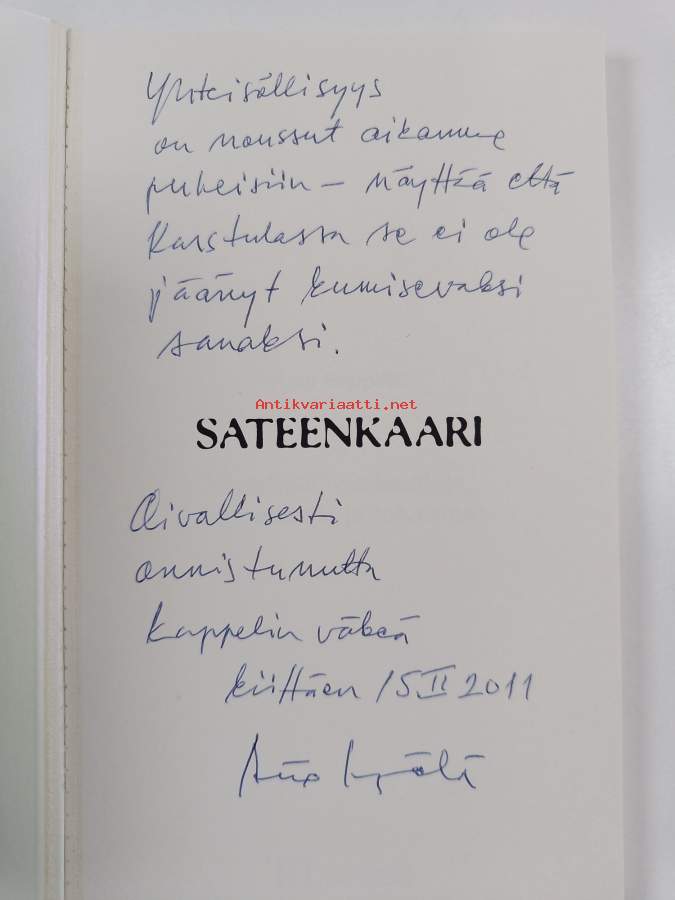 Yhteisöllisyys
on noussut aikamme
puheisiin – näyttää että
Karstulassa se ei ole
jäänyt kumisevaksi
sanaksi.
Antikvariaatti.net
SATEENKAARI
Oivallisesti
onnistunutta
kappelin väkeä
kiittäen 15 II 2011